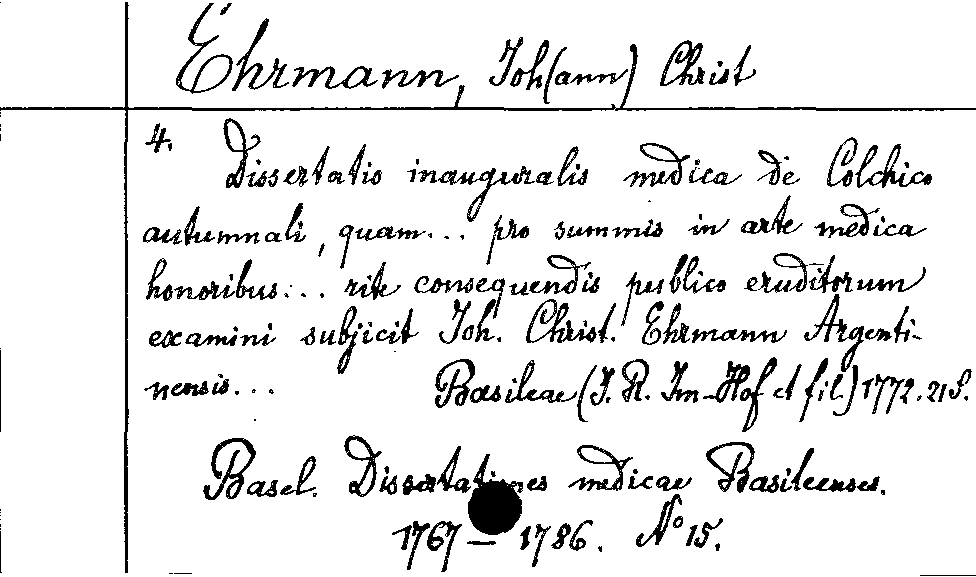 Ehrmann, Joh(ann) Christ
4.
Dissertatio inauguralis medica de Colchico
autumnali, quam... pro summis in arte medica
honoribus... rite consequendis publico eruditorum
examini subjicit Joh. Christ. Ehrmann Argenti-
nensis... Basileae (J. R. Im-Hof et fil.) 1772. 21 S.
Basel. Dissertationes medicae Basileenses.
1767 – 1786. No 15.